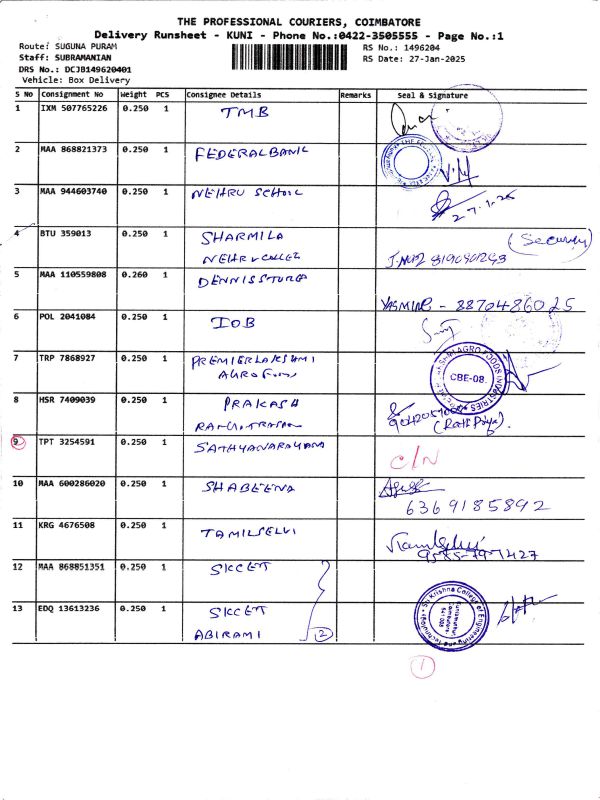 THE PROFESSIONAL COURIERS, COIMBATORE
Delivery Runsheet - KUNI - Phone No.:0422-3505555 - Page No.:1
Route: SUGUNA PURAM
RS No.: 1496204
Staff: SUBRAMANIAN
RS Date: 27-Jan-2025
DRS No.: DCJB149620401
Vehicle: Box Delivery
S No Consignment No Weight PCS Consignee Details Remarks Seal & Signature
1 IXM 507765226 0.250 1 TMB
2 MAA 868821373 0.250 1 FEDERALBANK
3 MAA 944603740 0.250 1 NEHRU SCHOOL
27.1.25
4 BTU 359013 0.250 1 SHARMILA
(Security)
NEHRU
5 MAA 110559808 0.260 1 DENNISSTORE
YASMINE - 8870486025
6 POL 2041084 0.250 1 IOB
7 TRP 7868927 0.250 1 PREMIERLAKSHMI
AGRO
CBE-08.
8 HSR 7409039 0.250 1 PRAKASH
9 TPT 3254591 0.250 1 SATHYANARAYANA
C/N
10 MAA 600286020 0.250 1 SHABEENA
6369185892
11 KRG 4676508 0.250 1 TAMILSELVI
12 MAA 868851351 0.250 1 SKCET
13 EDQ 13613236 0.250 1 SKCET
ABIRAMI 2
Sri Krishna College of Engineering and Technology
1